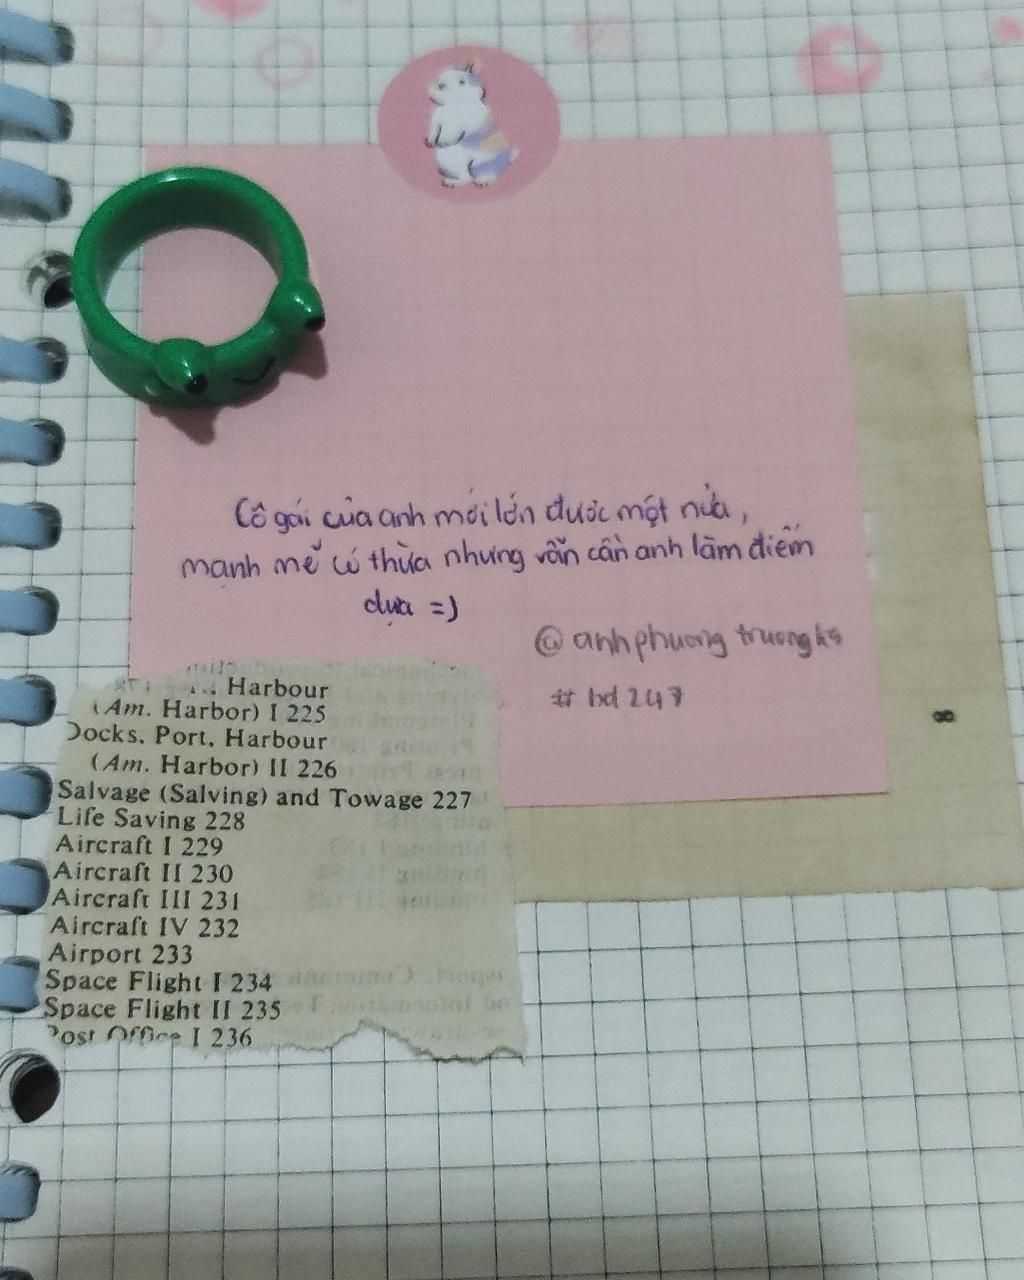 Cô gái của anh mới lớn được một nửa,
mạnh mẽ có thừa nhưng vẫn cần anh làm điểm
dựa =)
@anhphuongtruongks
# hd 247
Harbour
(Am. Harbor) I 225
Docks, Port, Harbour
(Am. Harbor) II 226
Salvage (Salving) and Towage 227
Life Saving 228
Aircraft I 229
Aircraft II 230
Aircraft III 231
Aircraft IV 232
Airport 233
Space Flight I 234
Space Flight II 235
Post Office I 236
8